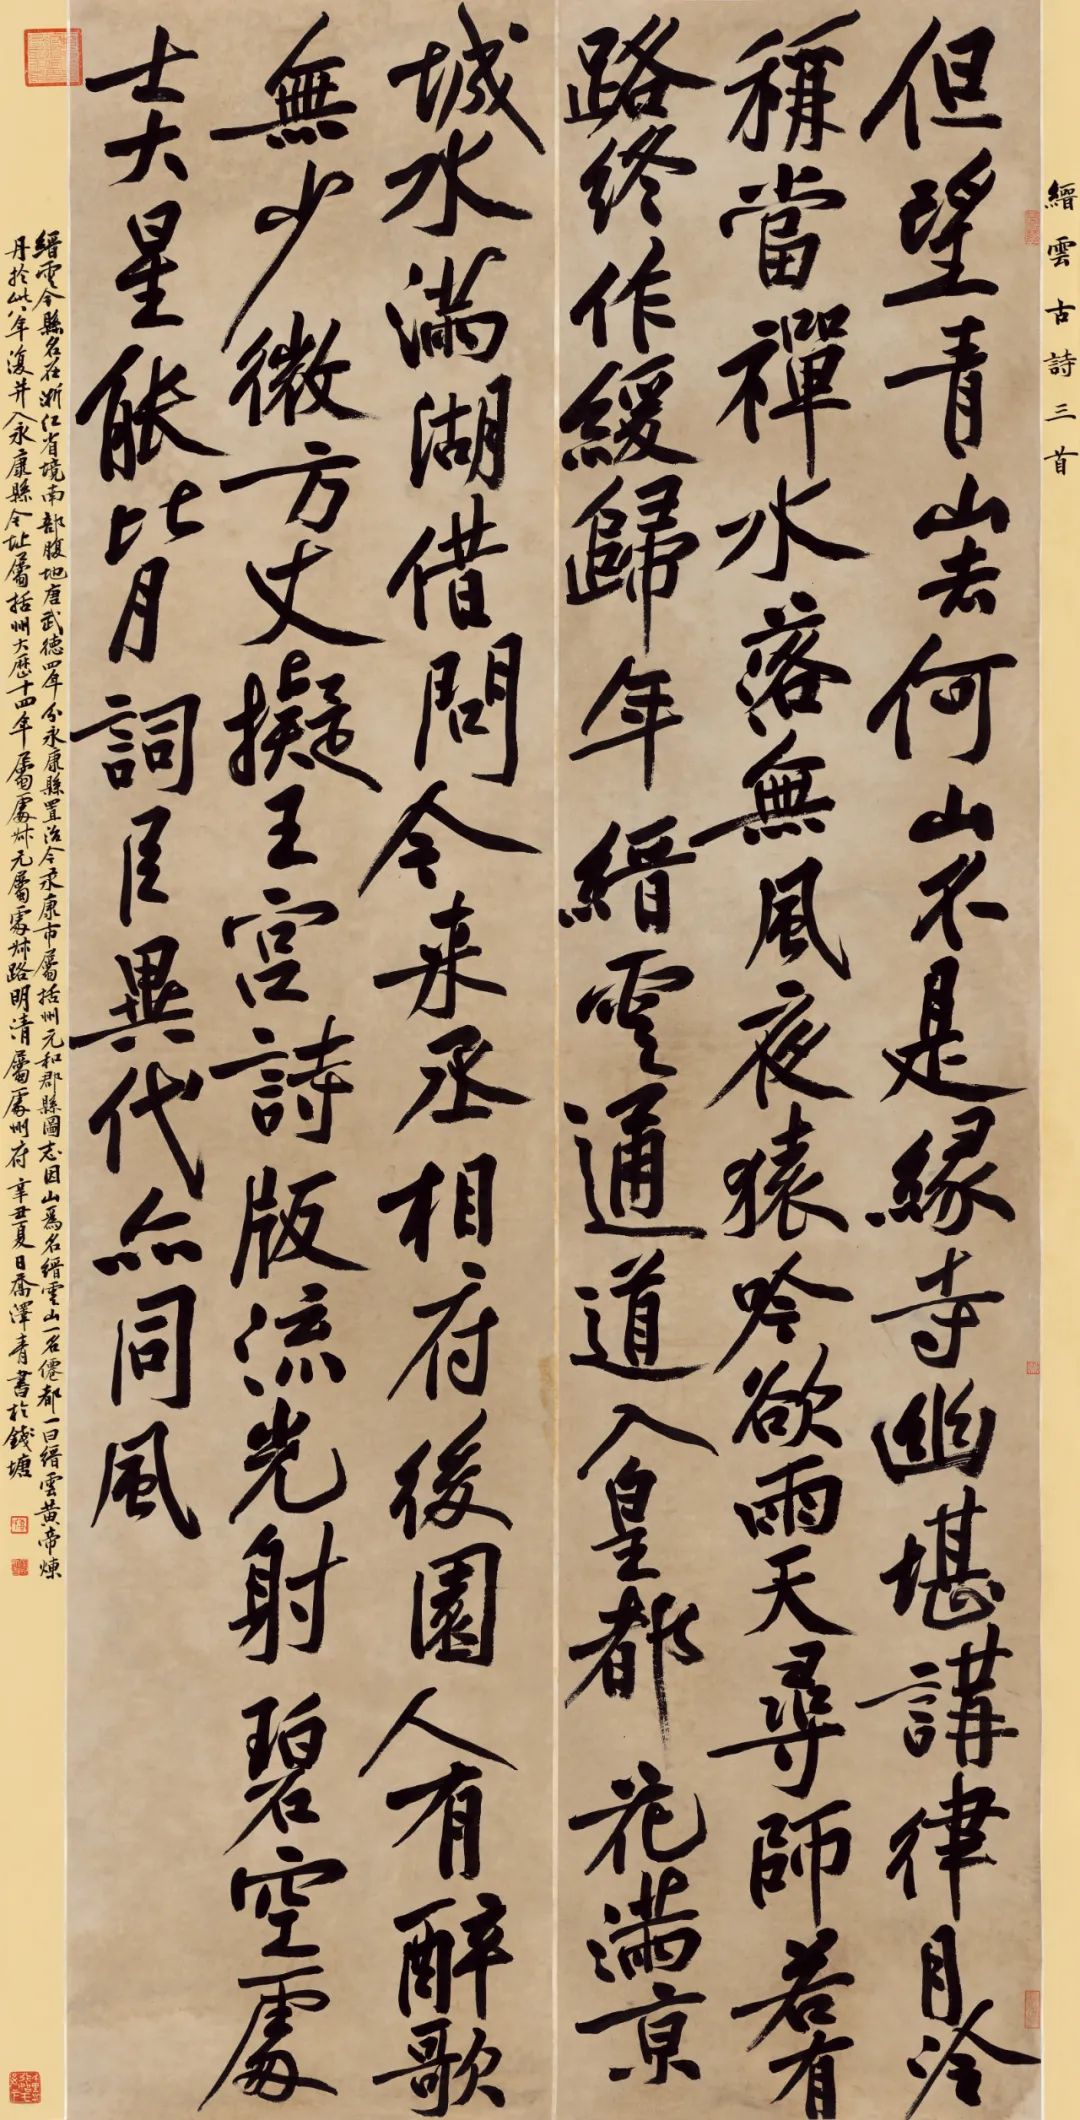 縉雲古詩三首
但望青山去何山不是緣寺幽堪講律月冷
稱當禪水落無風夜猿吟欲雨天尋師若有
路終作緩歸年縉雲通道入皇都花滿京
城水滿湖借問令来丞相府後園人有醉歌
無少微方丈擬王宮詩版流光射碧空處
士大星能比月詞臣異代亦同風
縉雲今縣名在浙江省境南部腹地唐武德四年分永康縣置治今永康市屬括州元和郡縣圖志因山爲名縉雲山一名僊都一曰縉雲黄帝煉
丹於此八年復并入永康縣今址屬括州大歷十四年屬處州元屬處州路明清屬處州府辛丑夏日喬澤青書於錢塘